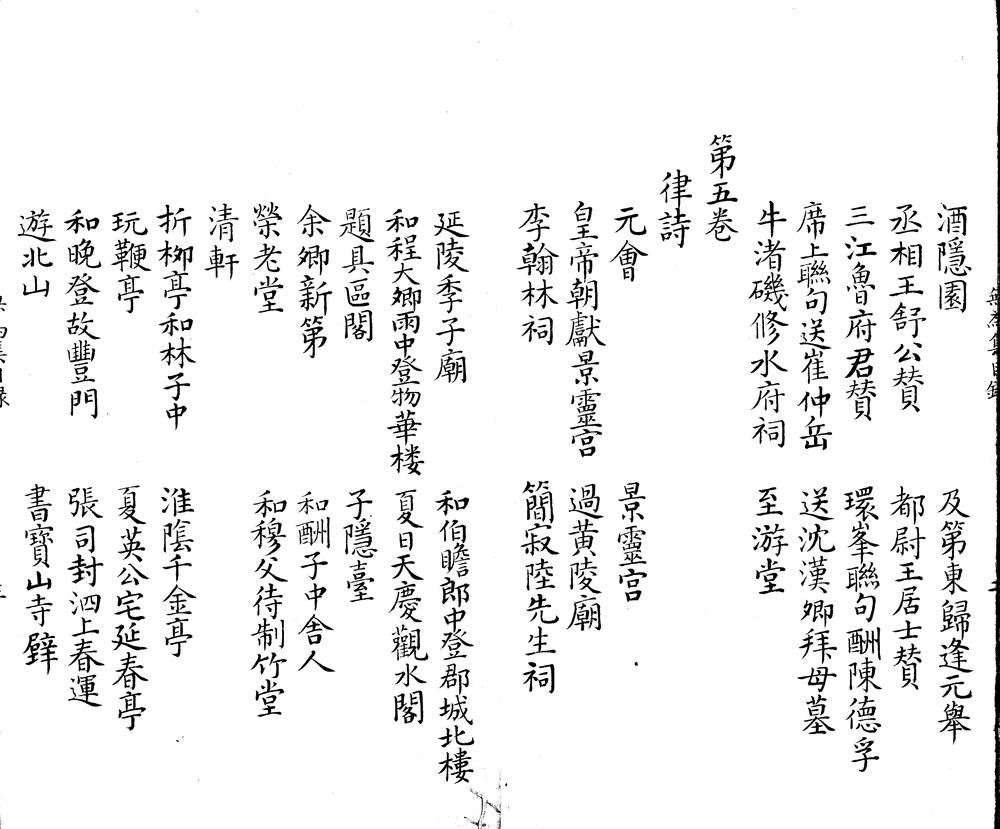 酒隱園 及第東歸逢元舉
丞相王舒公贊 都尉王居士贊
三江魯府君贊 環峯聯句酬陳德孚
席上聯句送崔仲岳 送沈漢卿拜母墓
牛渚磯修水府祠 至游堂
第五卷
律詩
元會 景靈宮
皇帝朝獻景靈宮 過黄陵廟
李翰林祠 簡寂陸先生祠
延陵季子廟 和伯瞻郎中登郡城北樓
和程大卿雨中登物華楼 夏日天慶觀水閣
題具區閣 子隱臺
余卿新第 和酬子中舍人
榮老堂 和穆父待制竹堂
清軒
折栁亭和林子中 淮陰千金亭
玩鞭亭 夏英公宅延春亭
和晚登故豐門 張司封泗上春運
遊北山 書寶山寺壁